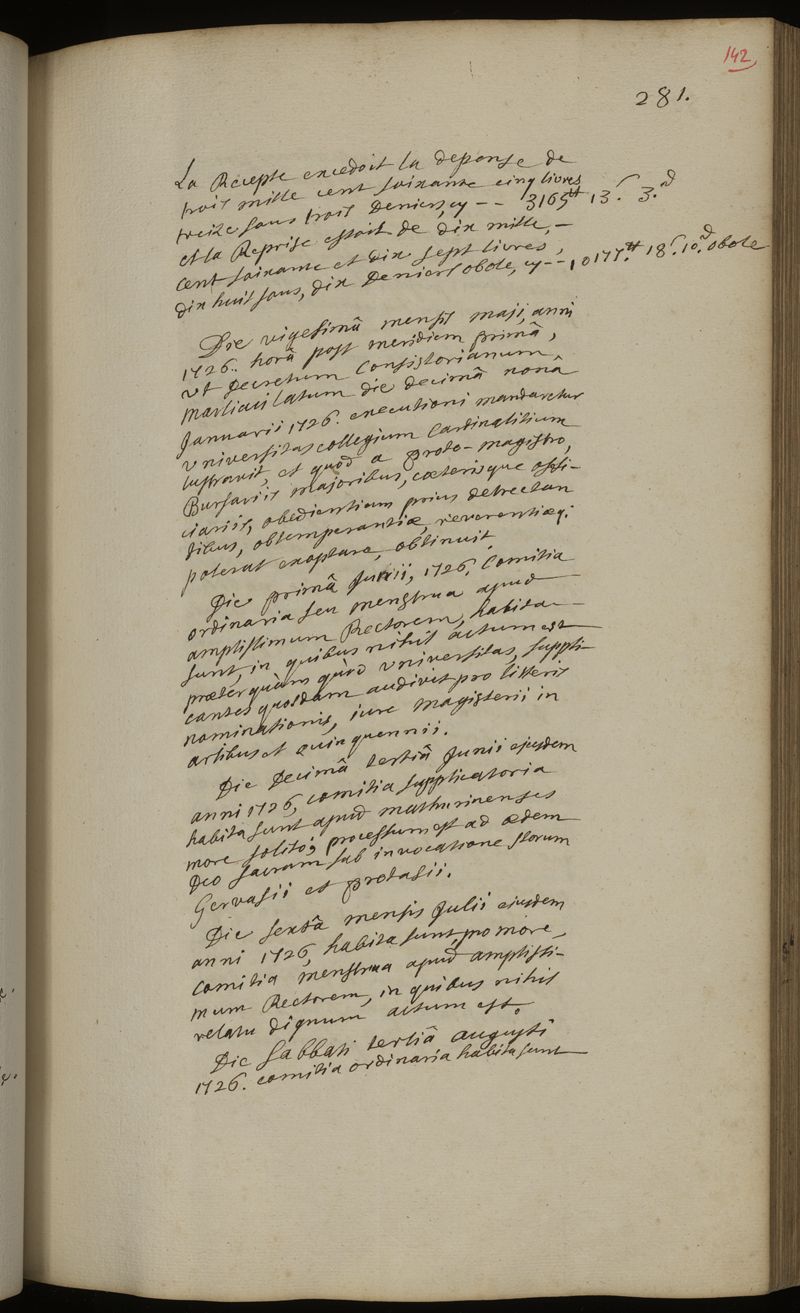 142
281.
La Recepte excedoit la depense de
trois mille cent soixante cinq livres
treize sous trois Deniers, cy -- 3165ᵗᵗ 13.ˢ 3.ᵈ
et la Reprise estoit de dix mille, –
cent soixante et dix sept livres,
dix huit sous, dix Deniers obole, cy -- 10177.ᵗᵗ 18.ˢ 10.ᵈ obole
Die vigesimâ mensis maji, anni
1726. horâ post meridiem primâ,
vt Decretum Consistorianum,
marliaci latum die decimâ nonâ
Januarii 1726. executioni mandaretur
Vniversitas collegium Cardinalitium
lustravit, et quod a proto-magistro,
Bursariis majoribus, cæterisque offi-
ciariis, obedientiam prius detrectan
tibus, obtemperantiæ, reverentiæq;
poterat exoptare, obtinuit.
Die primâ Junii, 1726, Comitia
ordinaria seu menstrua apud
amplissimum Rectorem, habita –
sunt, in quibus nihil actum est
præterquàm quòd Vniversitas, suppli-
cantes quosdam audivit pro litteris
nominationis, iure magisterii in
artibus et quinquennii.
Die Decimâ tertiâ Junii ejusdem
anni 1726, comitia supplicatoria
habita sunt apud mathurinenses
more solito; processum est ad ædem
Deo sacram sub invocatione storum
Gervasii et protasii.
Die sextâ mensis Julii ejusdem
anni 1726, habita sunt, pro more,
Comitia menstrua apud amplissi-
mum Rectorem, in quibus nihil
relatu dignum actum est.
Die sabbati tertiâ augusti
1726. comitia ordinaria habita sunt